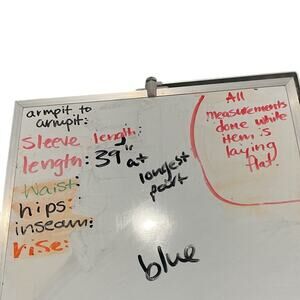 armpit to
armpit:
Sleeve length:
length: 39" at
longest
part
Waist:
hips:
inseam:
rise:
All
measurements
done while
item is
laying
flat.
blue